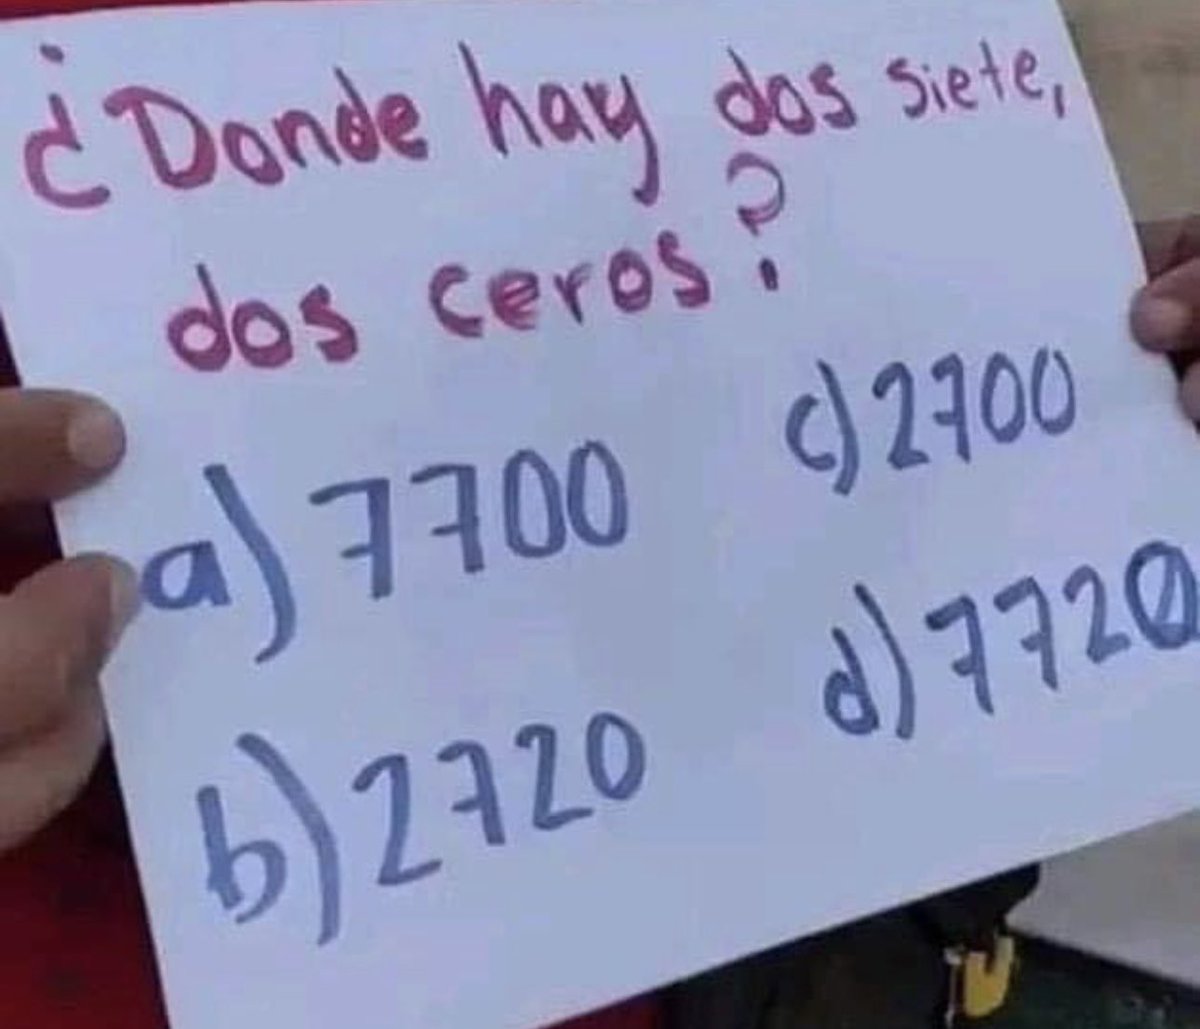 ¿Donde hay dos siete,
dos ceros?
a) 7700
c) 2700
b) 2720
d) 7720